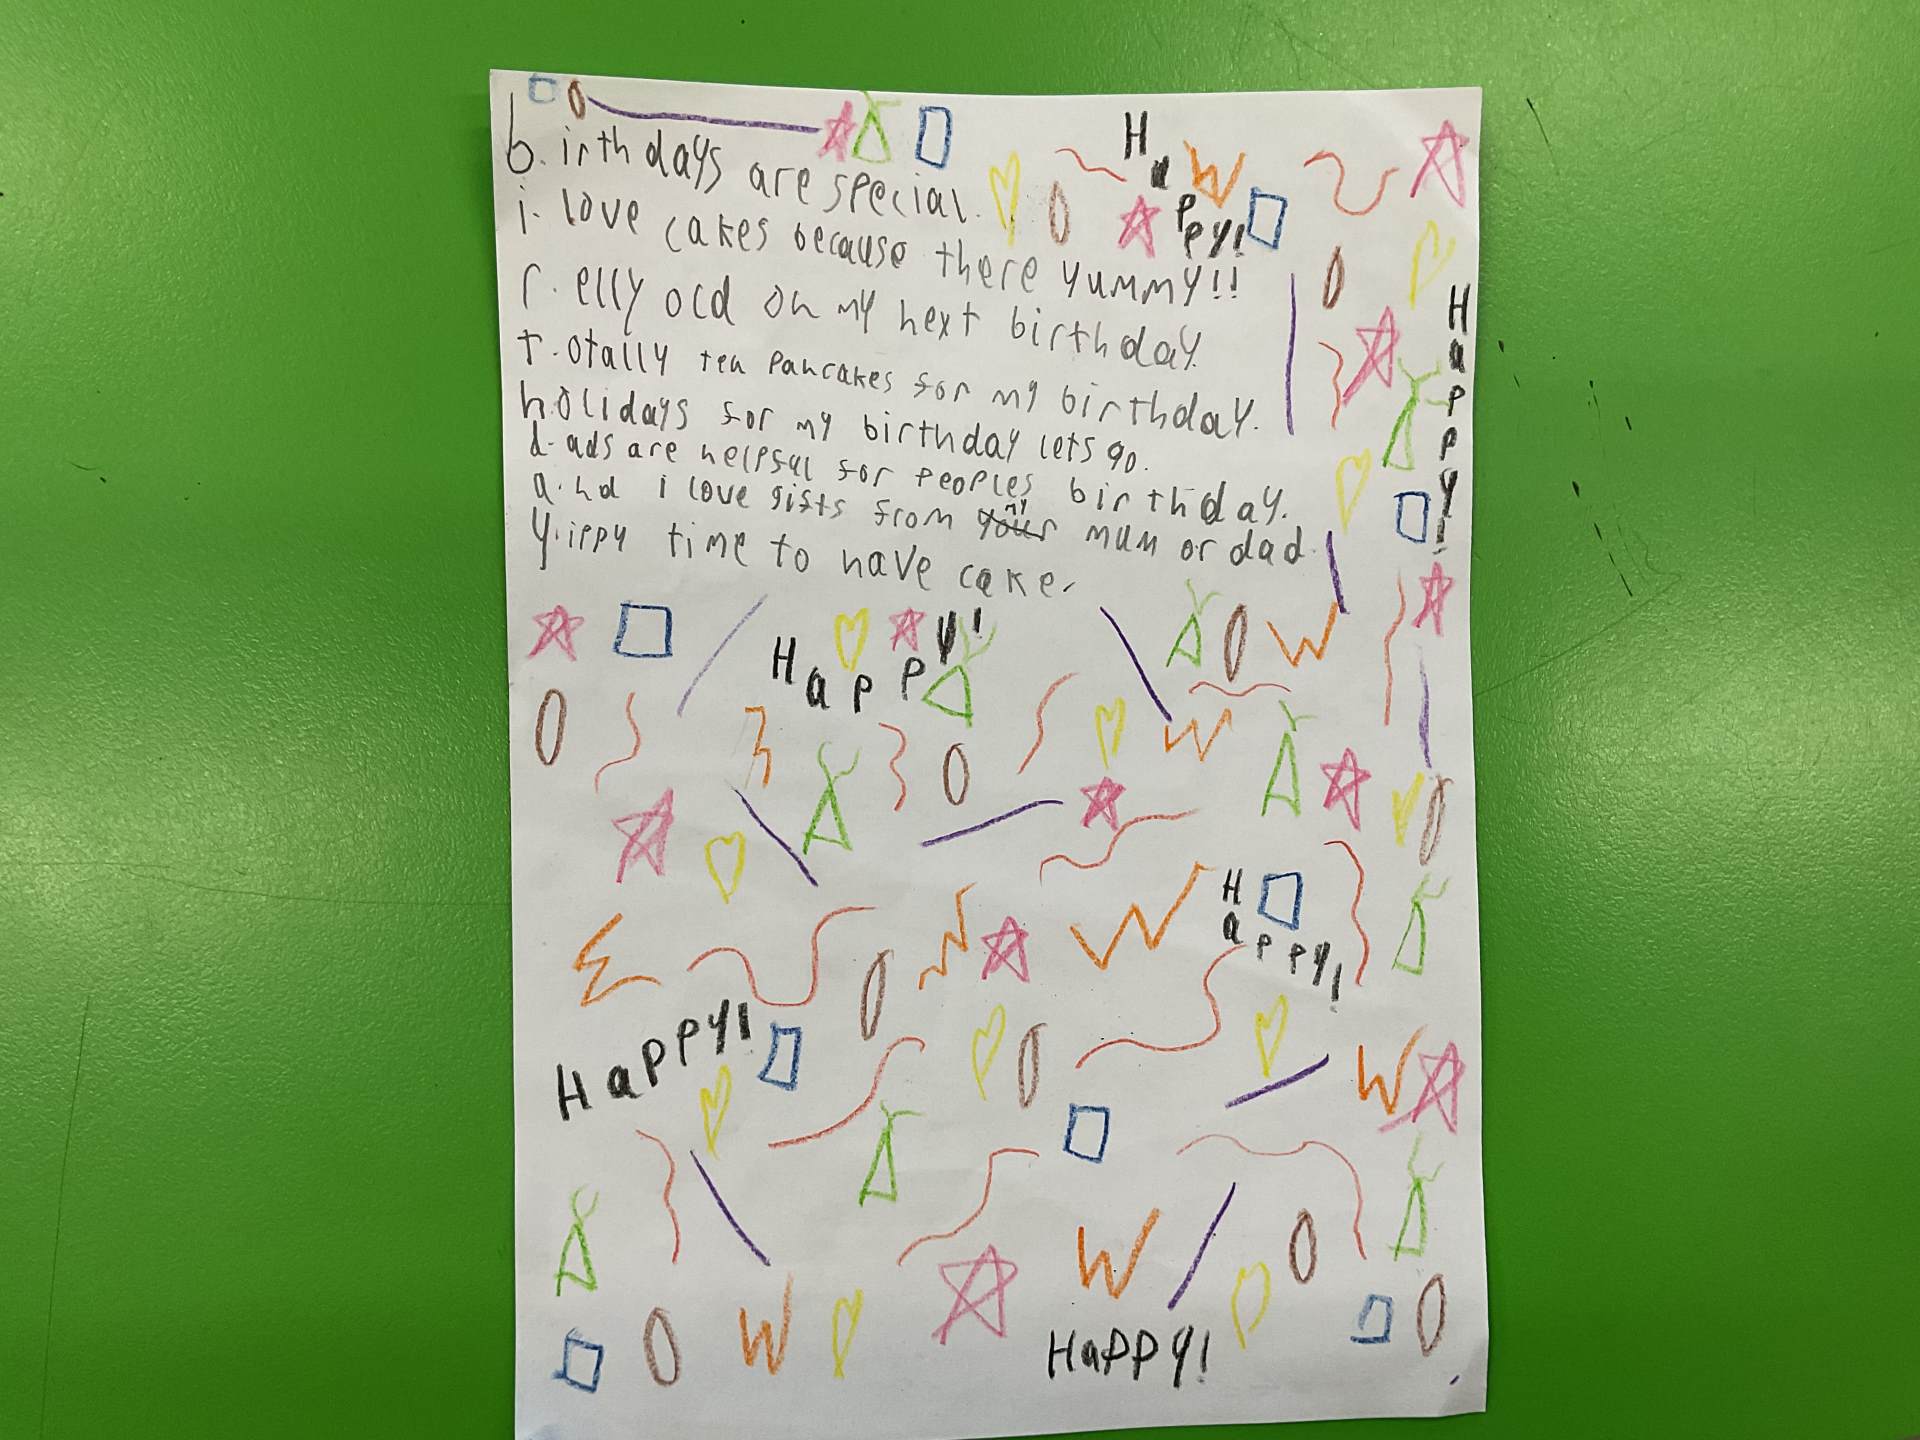 b.irthdays are special.
i. love cakes because there yummy!!
r. elly old on my next birthday.
t.otally ten Pancakes for my birthday.
h.olidays for my birthday lets go.
d-ads are helpful for peoples birthday.
a.nd i love gifts from my mum or dad.
y.ippy time to have cake.
Happy!
Happy!
Happy!
Happy!
Happy!
Happy!